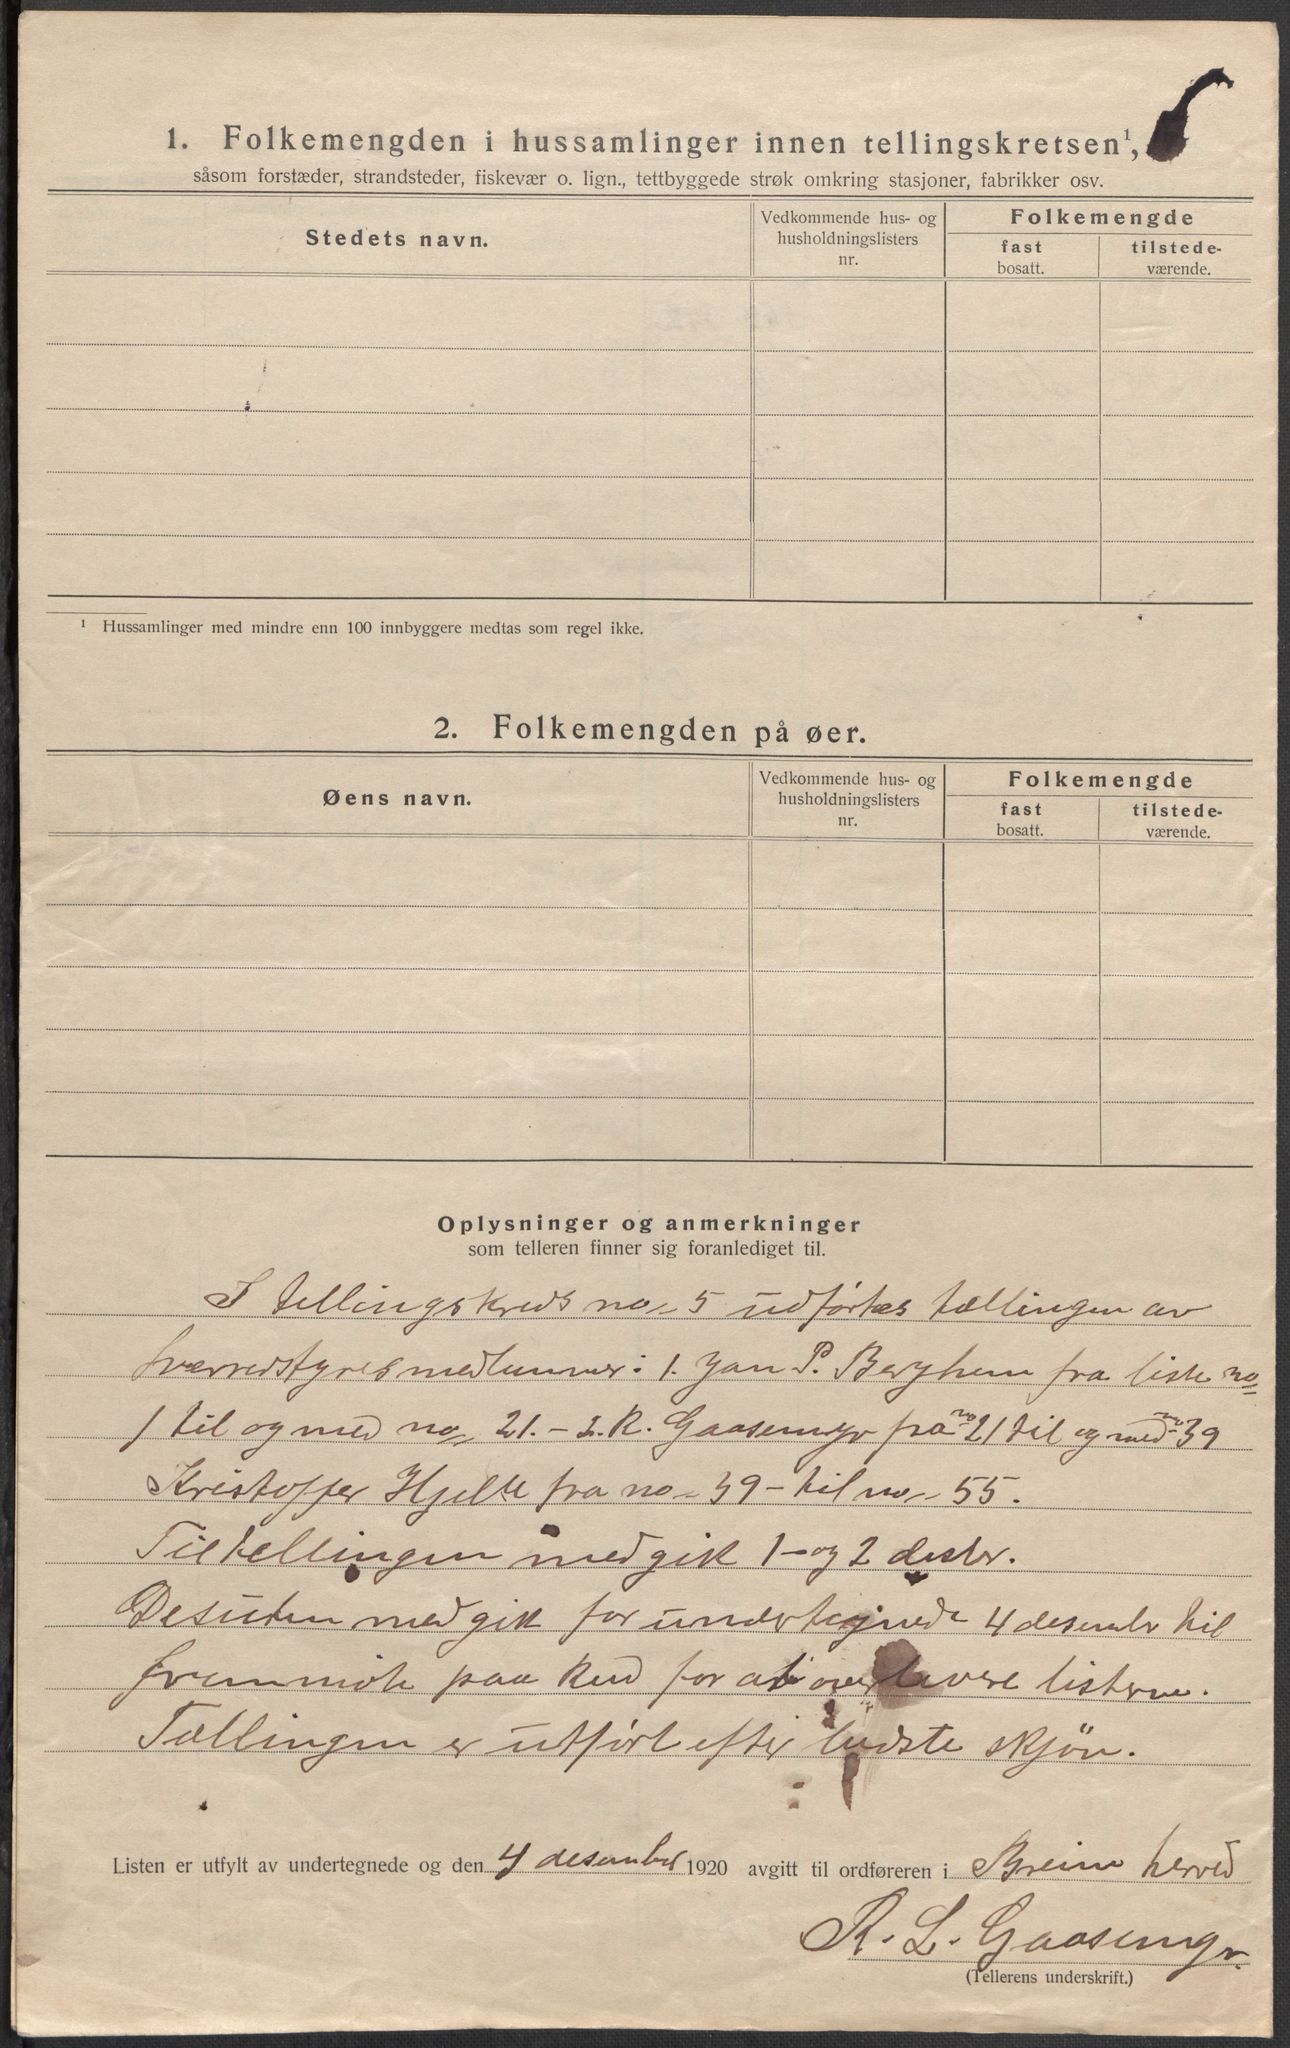 1. Folkemengden i hussamlinger innen tellingskretsen¹,
såsom forstæder, strandsteder, fiskevær o. lign., tettbyggede strøk omkring stasjoner, fabrikker osv.
Stedets navn.
Vedkommende hus- og husholdningslisters nr.
Folkemengde
fast bosatt.
tilstede-værende.
¹ Hussamlinger med mindre enn 100 innbyggere medtas som regel ikke.
2. Folkemengden på øer.
Øens navn.
Vedkommende hus- og husholdningslisters nr.
Folkemengde
fast bosatt.
tilstede-værende.
Oplysninger og anmerkninger
som telleren finner sig foranlediget til.
I tellingskreds no 5 udførtes tællingen av
herredstyresmedlemmer: 1. Jan P. Berghem fra liste no
1 til og med no 21. – 2. R. Gaasemyr fra no 21 til og med no 39
Kristoffer Hjelle fra no 39 – til no 55.
Til tellingen medgik 1– og 2 desbr.
Desuten medgik for undertegnede 4 desembr til
fremmøte paa Red for at overlevere listerne.
Tællingen er utført efter bedste skjøn.
Listen er utfylt av undertegnede og den 4 desember 1920 avgitt til ordføreren i Breim herred
R. L. Gaasemyr.
(Tellerens underskrift.)